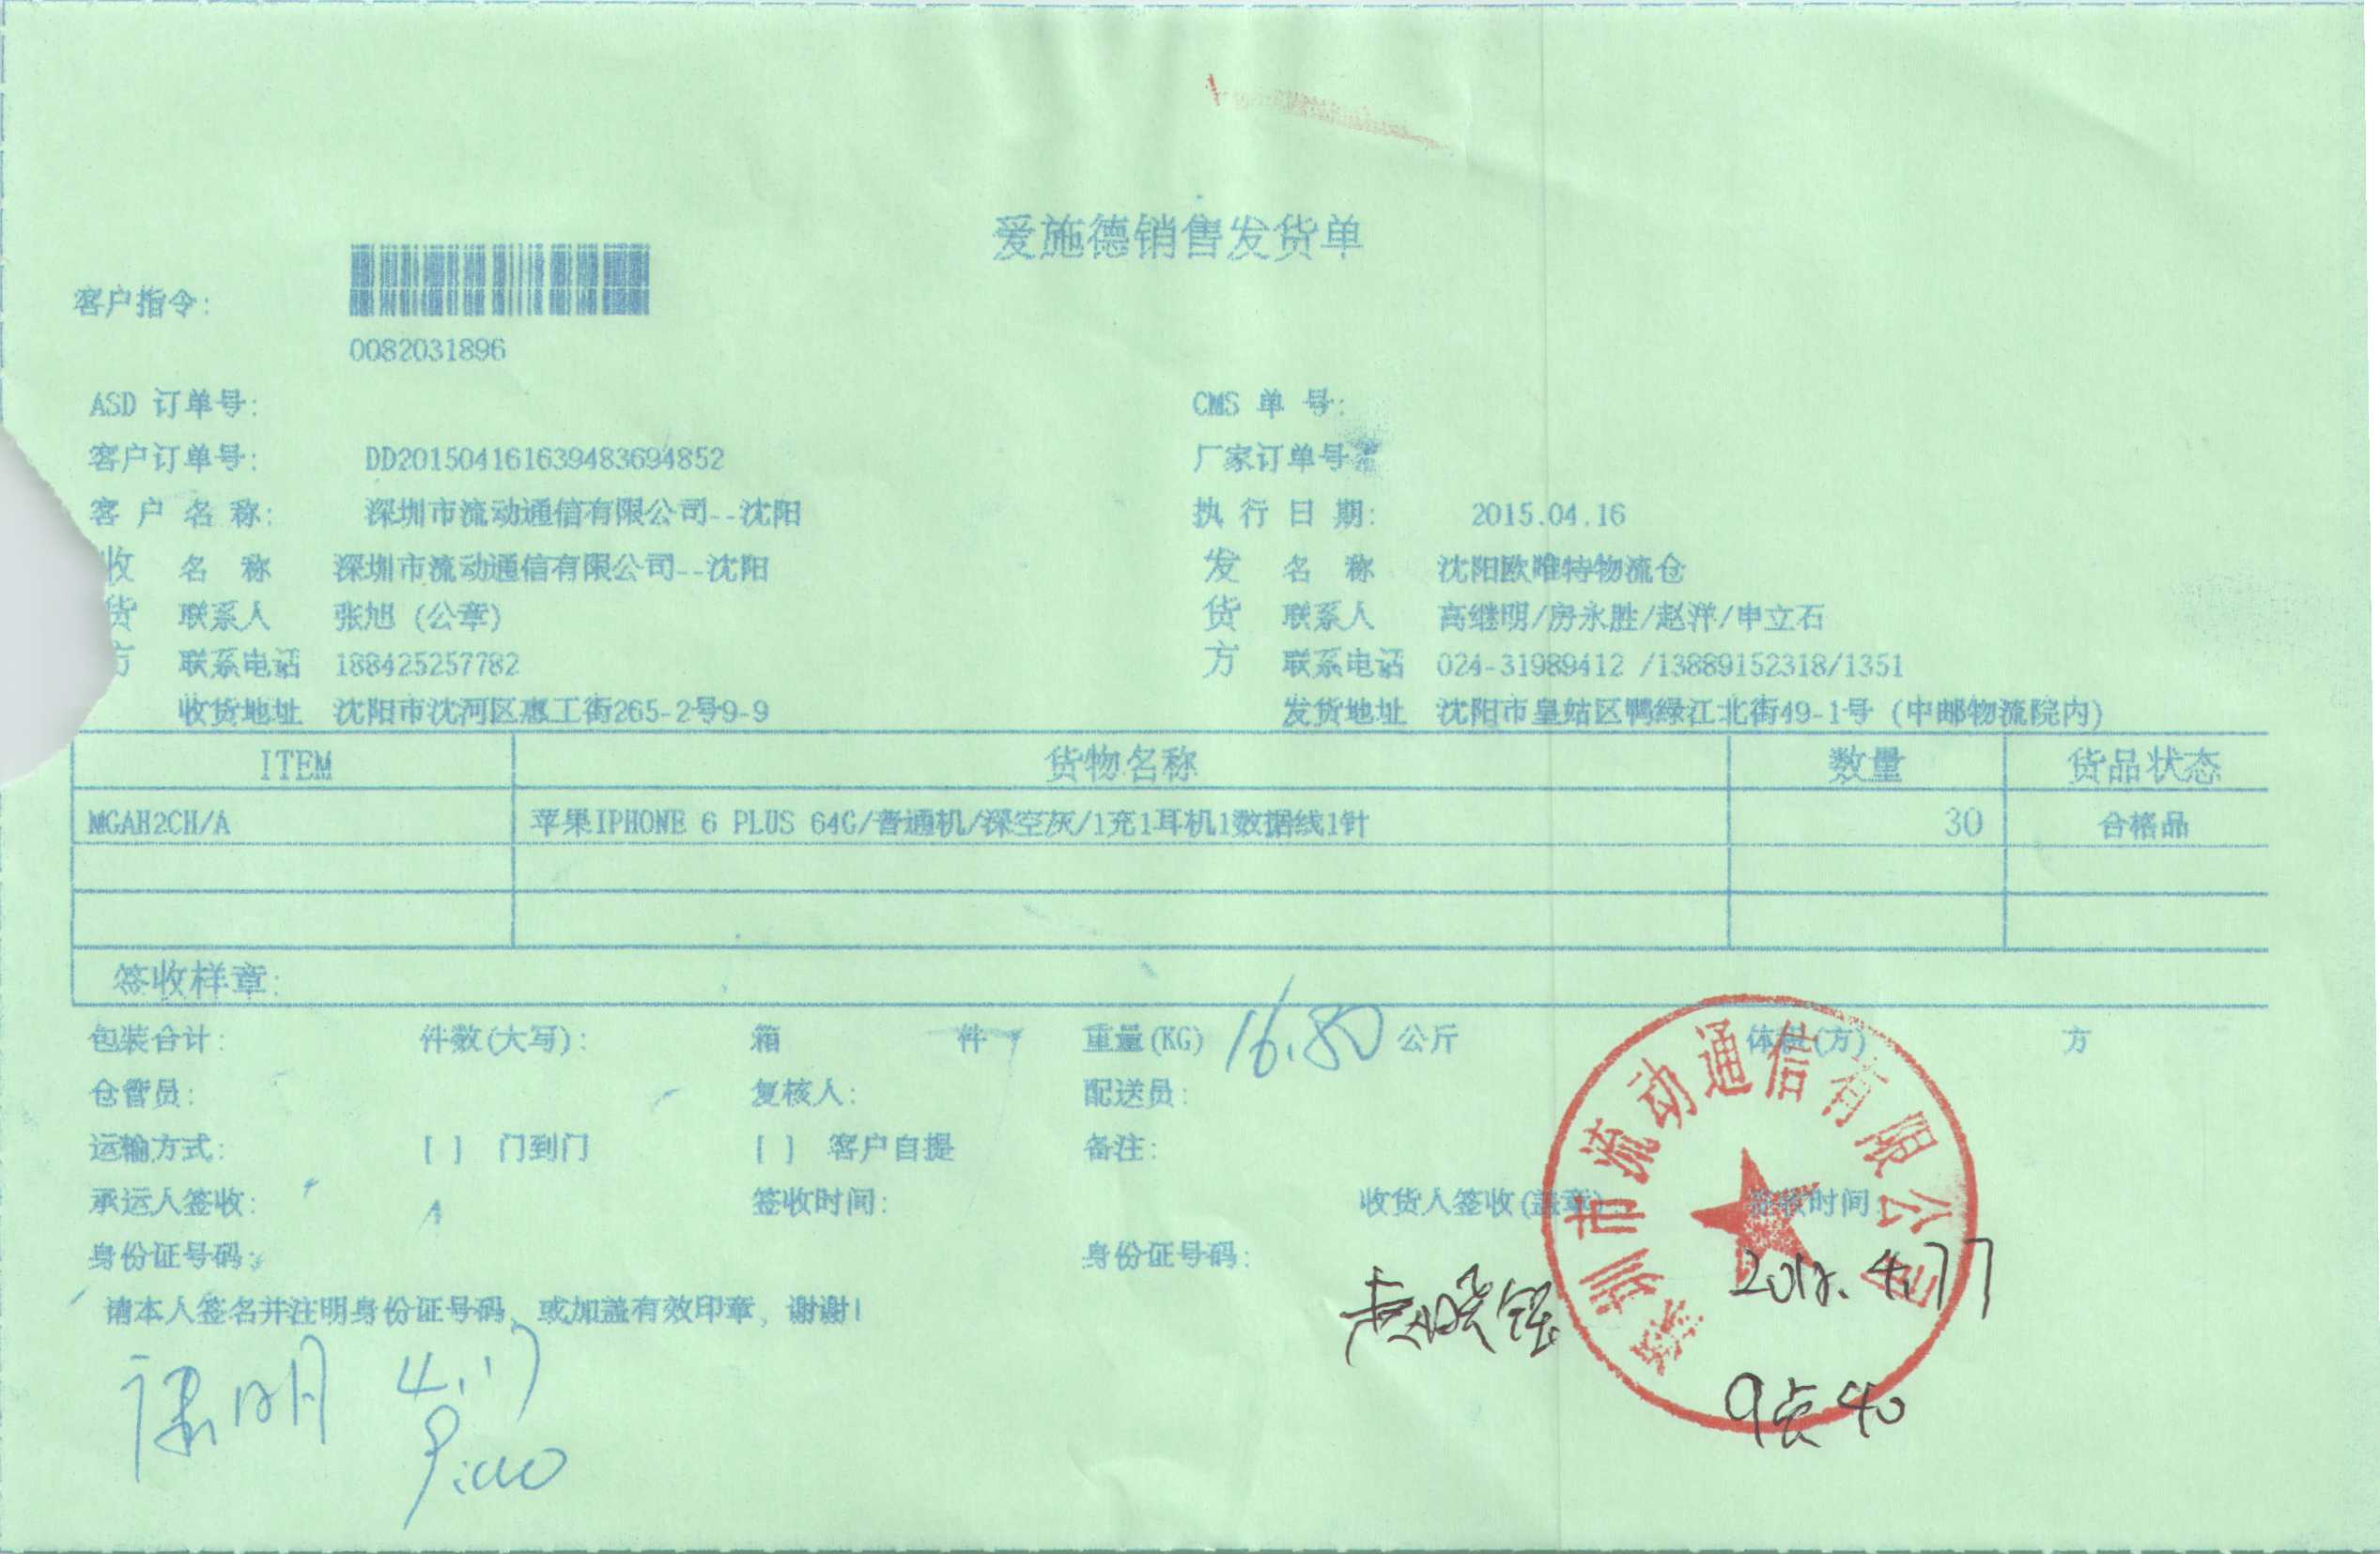 爱施德销售发货单
客户指令:
0082031896
ASD 订单号: CMS 单 号:
客户订单号: DD201504161639483694852 厂家订单号
客 户 名 称: 深圳市流动通信有限公司--沈阳 执 行 日 期: 2015.04.16
收 名 称 深圳市流动通信有限公司--沈阳 发 名 称 沈阳欧唯特物流仓
货 联系人 张旭 (公章) 货 联系人 高继明/房永胜/赵洋/申立石
方 联系电话 188425257782 方 联系电话 024-31989412 /13889152318/1351
收货地址 沈阳市沈河区惠工街265-2号9-9 发货地址 沈阳市皇姑区鸭绿江北街49-1号 (中邮物流院内)
ITEM 货物名称 数量 货品状态
MGAH2CH/A 苹果IPHONE 6 PLUS 64G/普通机/深空灰/1充1耳机1数据线1针 30 合格品
签收样章:
包装合计: 件数(大写): 箱 件 重量(KG) 16.80 公斤 体积(方) 方
仓管员: 复核人: 配送员:
运输方式: [ ] 门到门 [ ] 客户自提 备注:
承运人签收: 签收时间: 收货人签收(盖章) 签收时间
身份证号码: 身份证号码:
请本人签名并注明身份证号码、或加盖有效印章, 谢谢!
深圳市流动通信有限公司
4.17
9点40